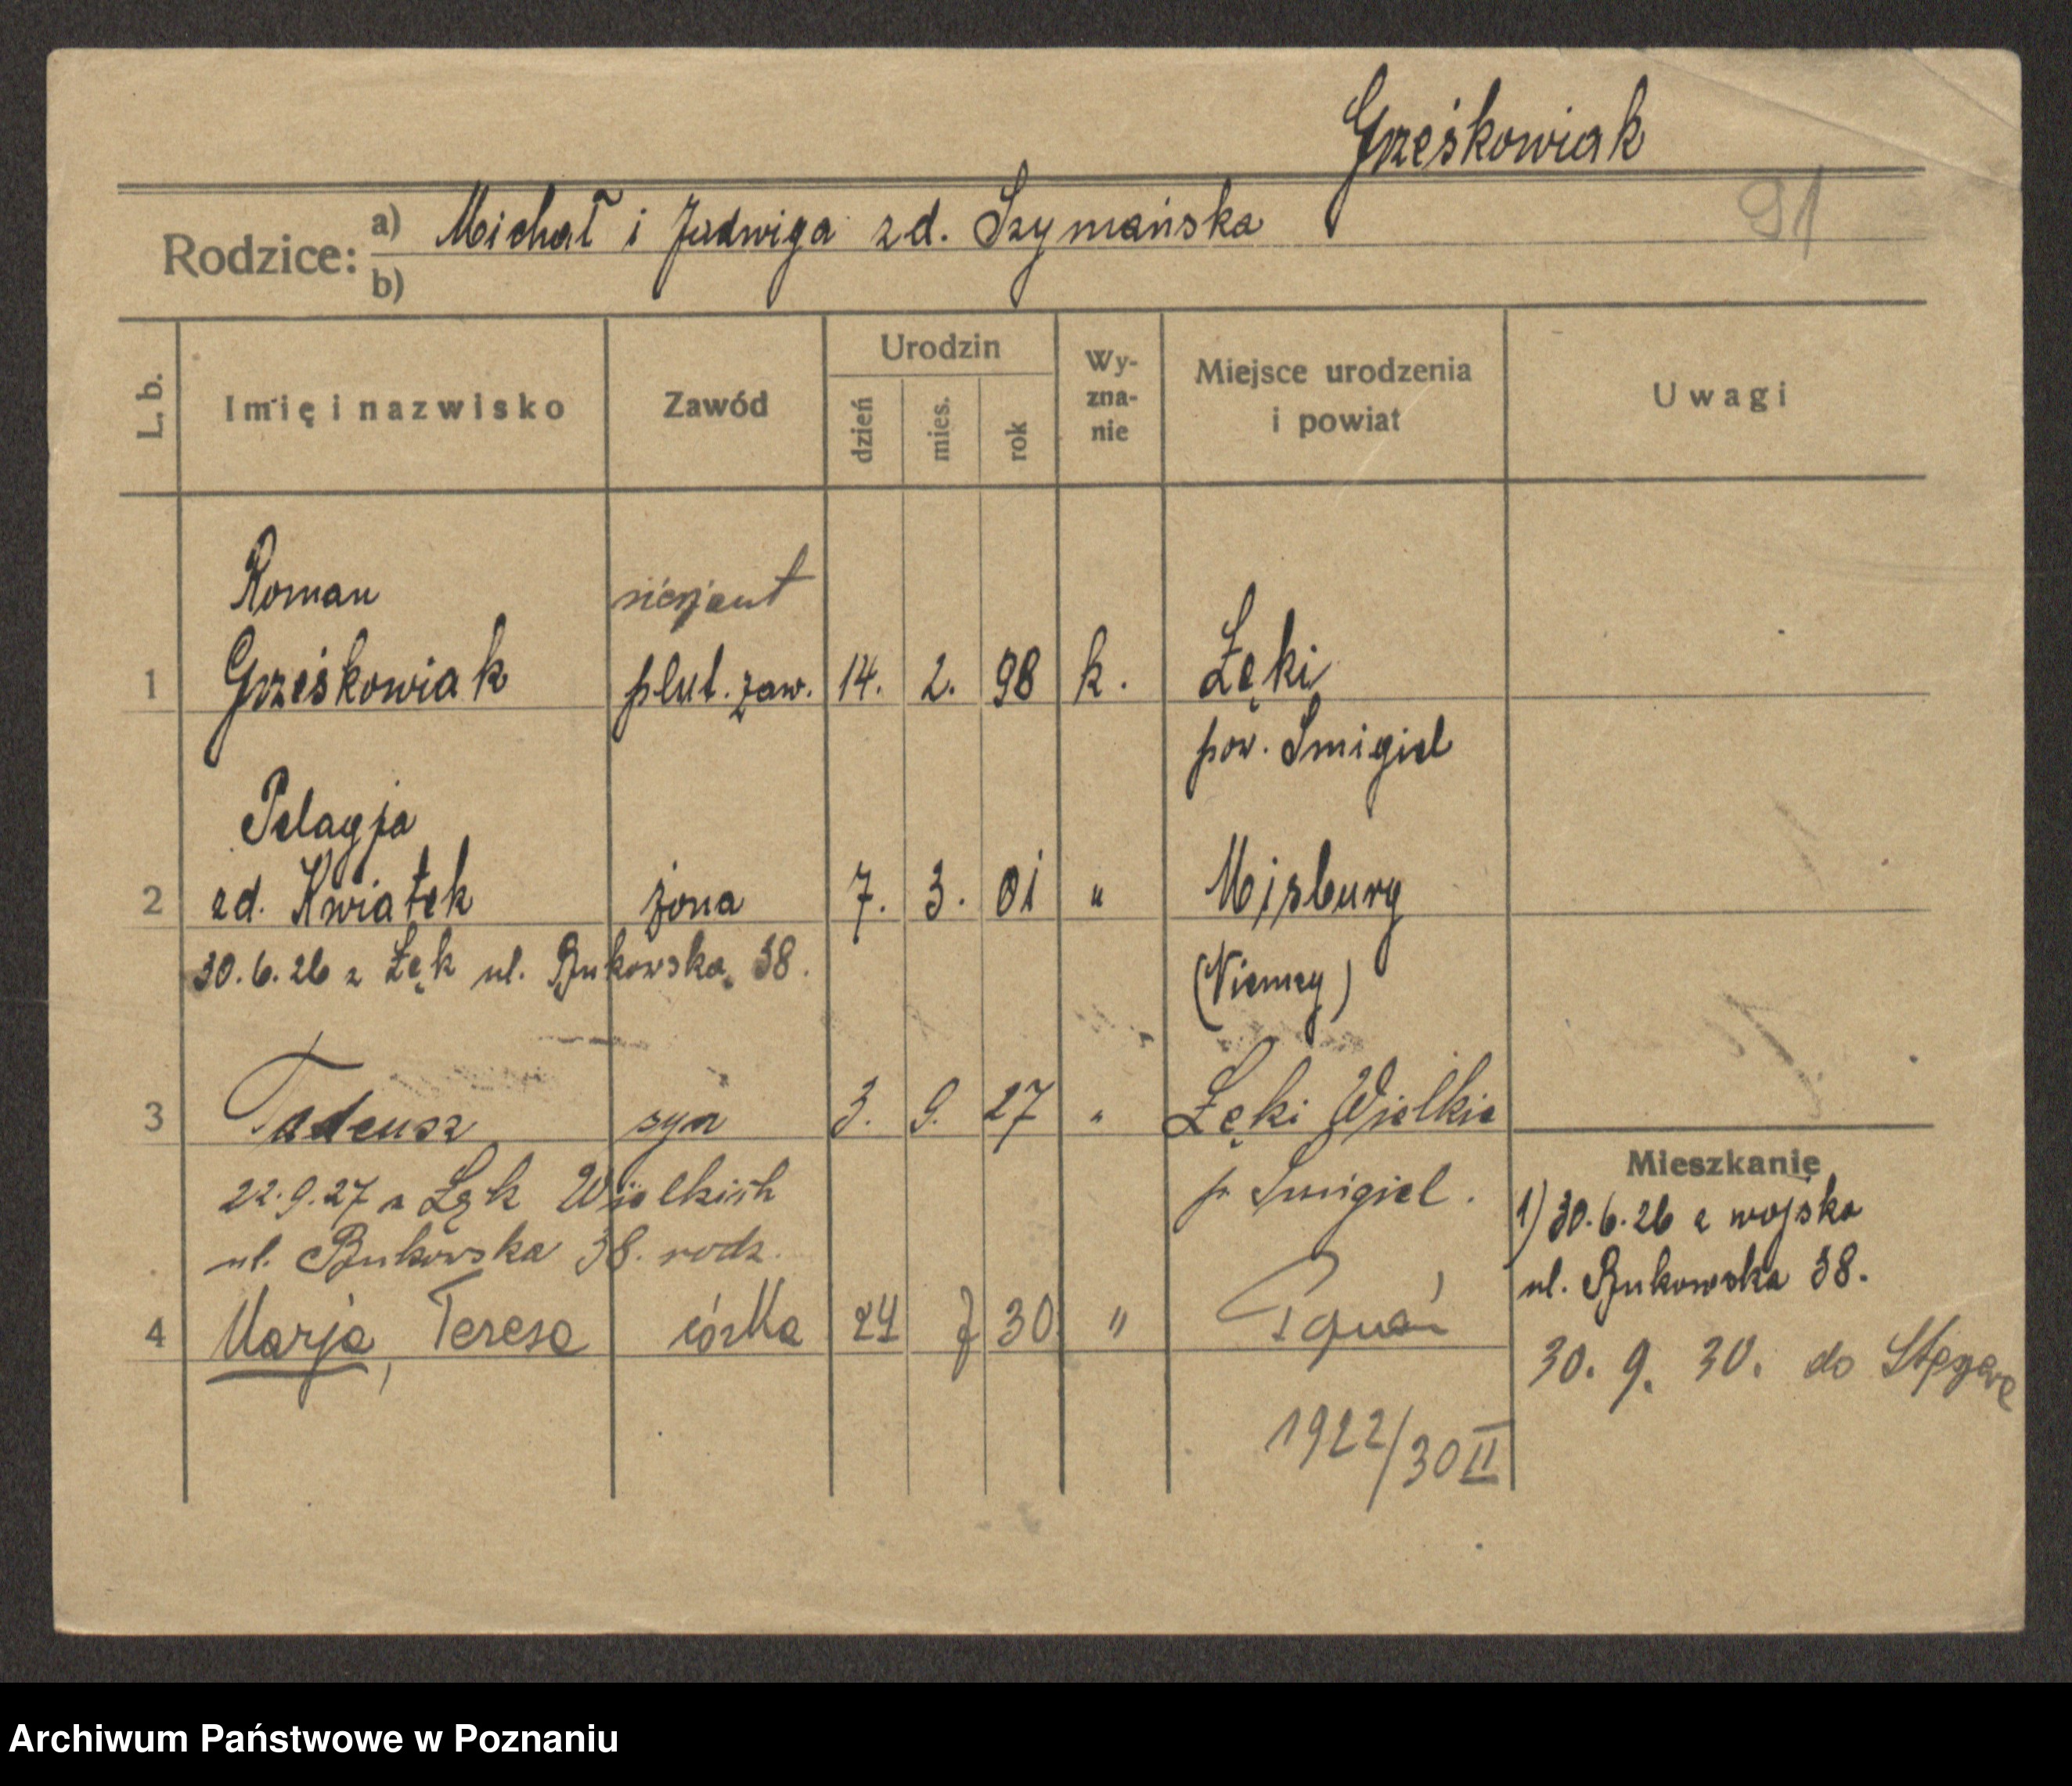 Grześkowiak
91
Rodzice: a) Michał i Jadwiga zd. Szymańska
b)
L. b. Imię i nazwisko Zawód Urodzin dzień mies. rok Wy-zna-nie Miejsce urodzenia i powiat Uwagi
Roman sierżant
1 Grześkowiak plut. zaw. 14. 2. 98 k. Łęki
pow. Śmigiel
Pelagja
2 zd. Kwiatek żona 7. 3. 01 " Misburg
30.6.26 z Łęk ul. Bukowska 38. (Niemcy)
3 Tadeusz syn 3. 9. 27 " Łęki Wielkie
22.9.27 z Łęk Wielkich p. Śmigiel.
ul. Bukowska 38. rodz.
4 Marja, Teresa córka 24 7 30 " Poznań
1922/30 II
Mieszkanie
1) 30.6.26 z wojska
ul. Bukowska 38.
30. 9. 30. do
Archiwum Państwowe w Poznaniu